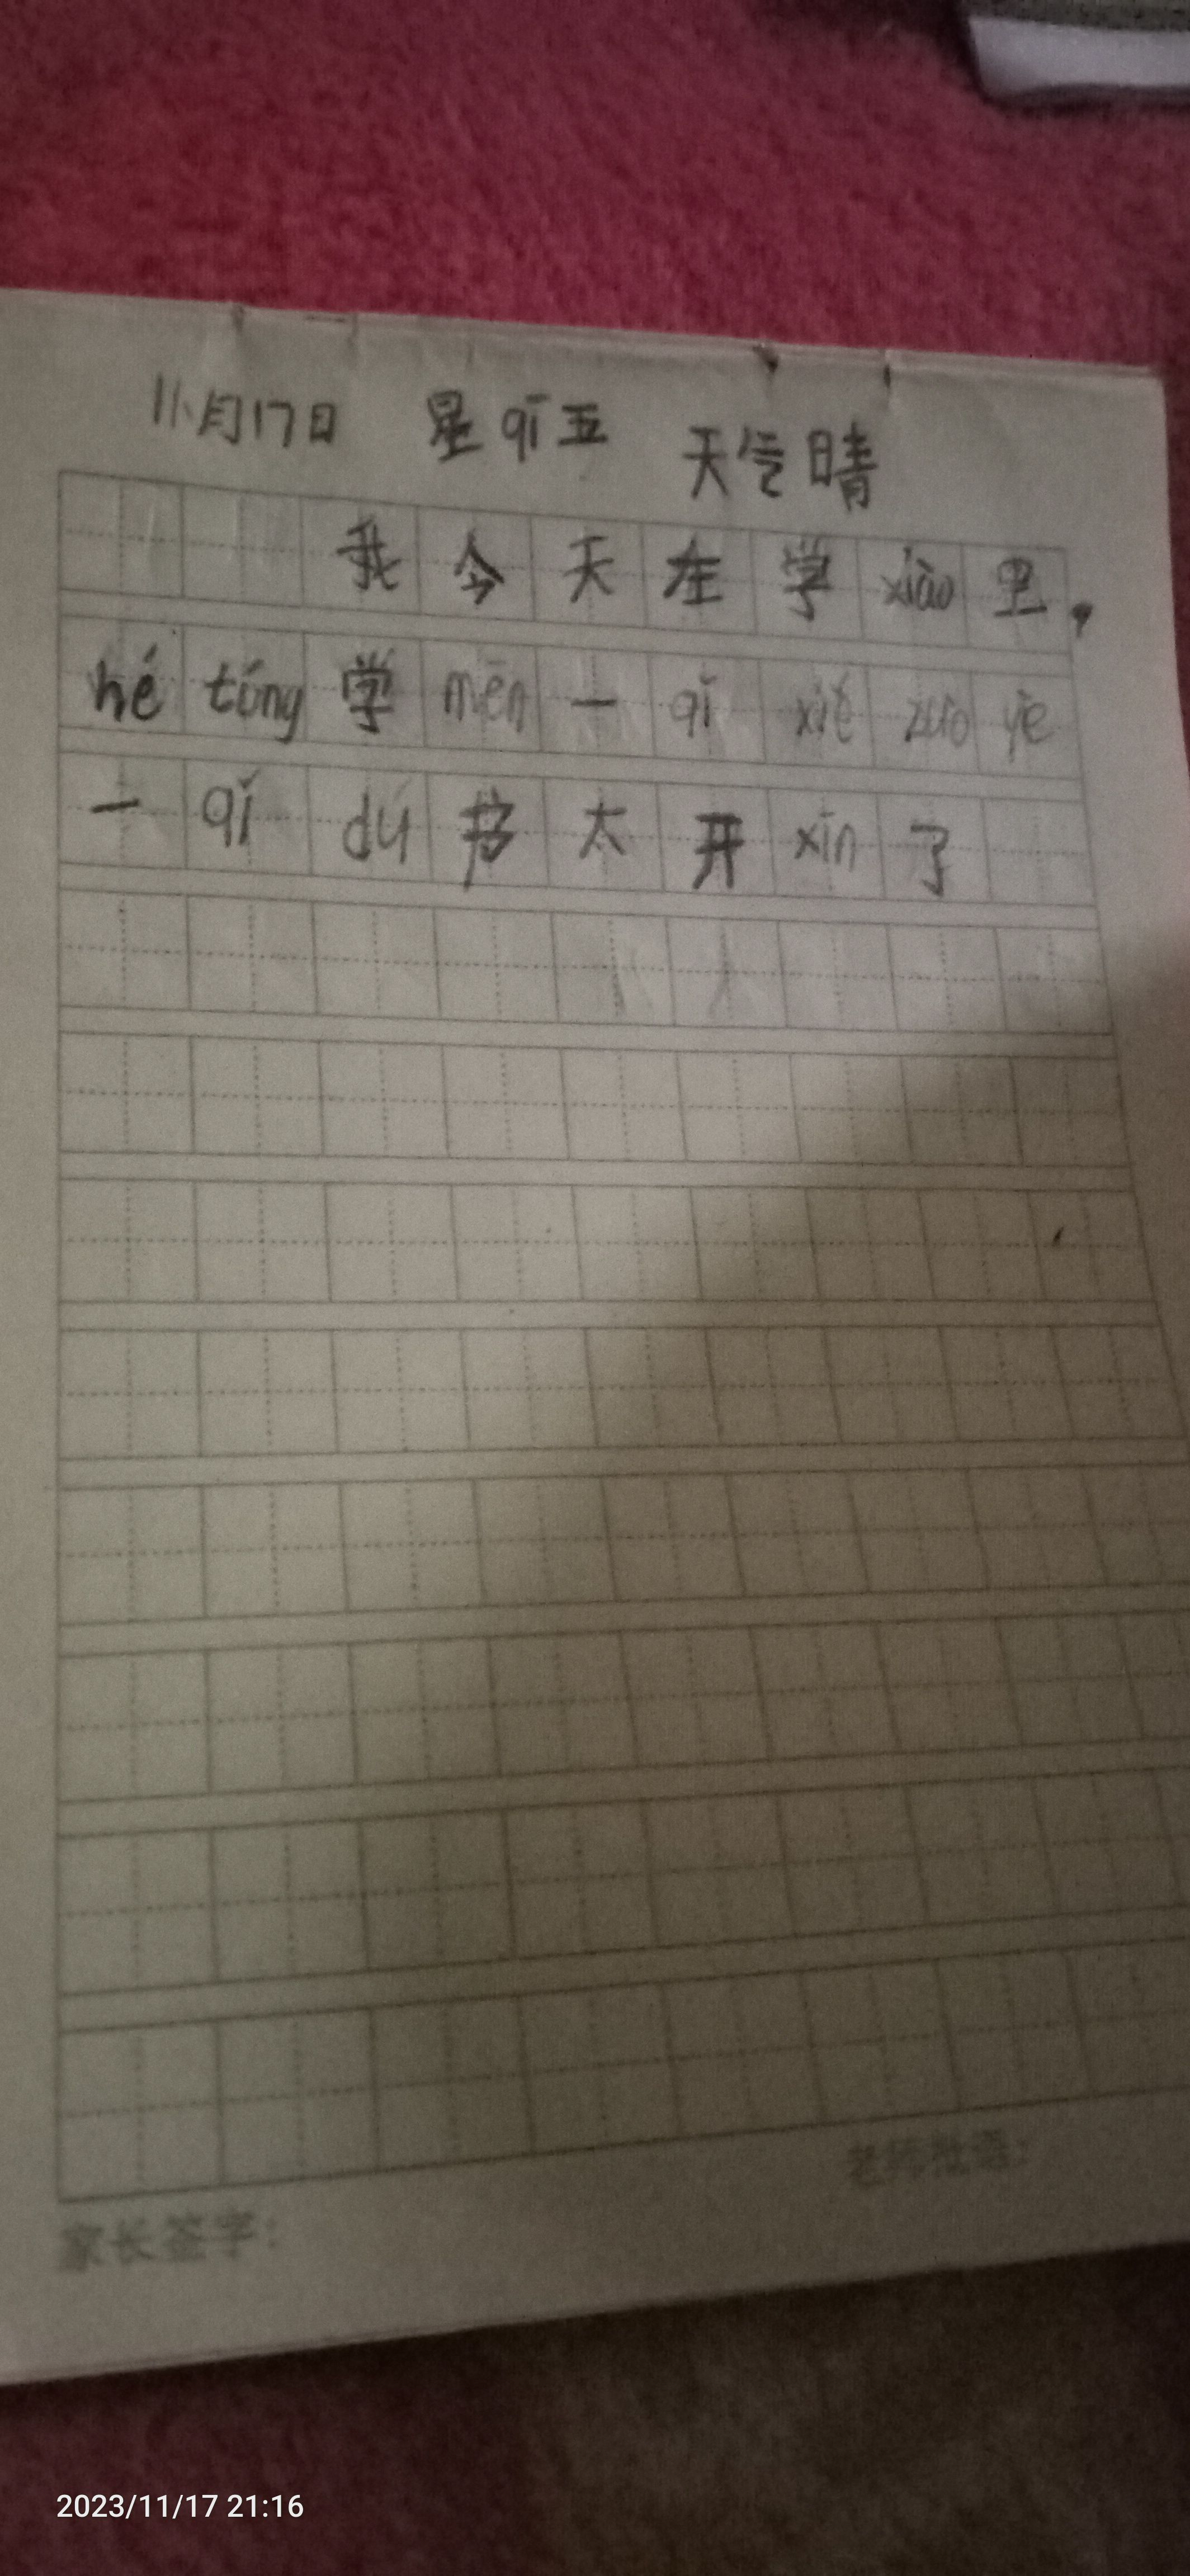 11月17日 星qī五 天气晴
我今天在学xiào里,
hé tóng学mēn一qǐ xiě zuò yè
一qǐ dú书太开xīn了
老师批语:
家长签字:
2023/11/17 21:16